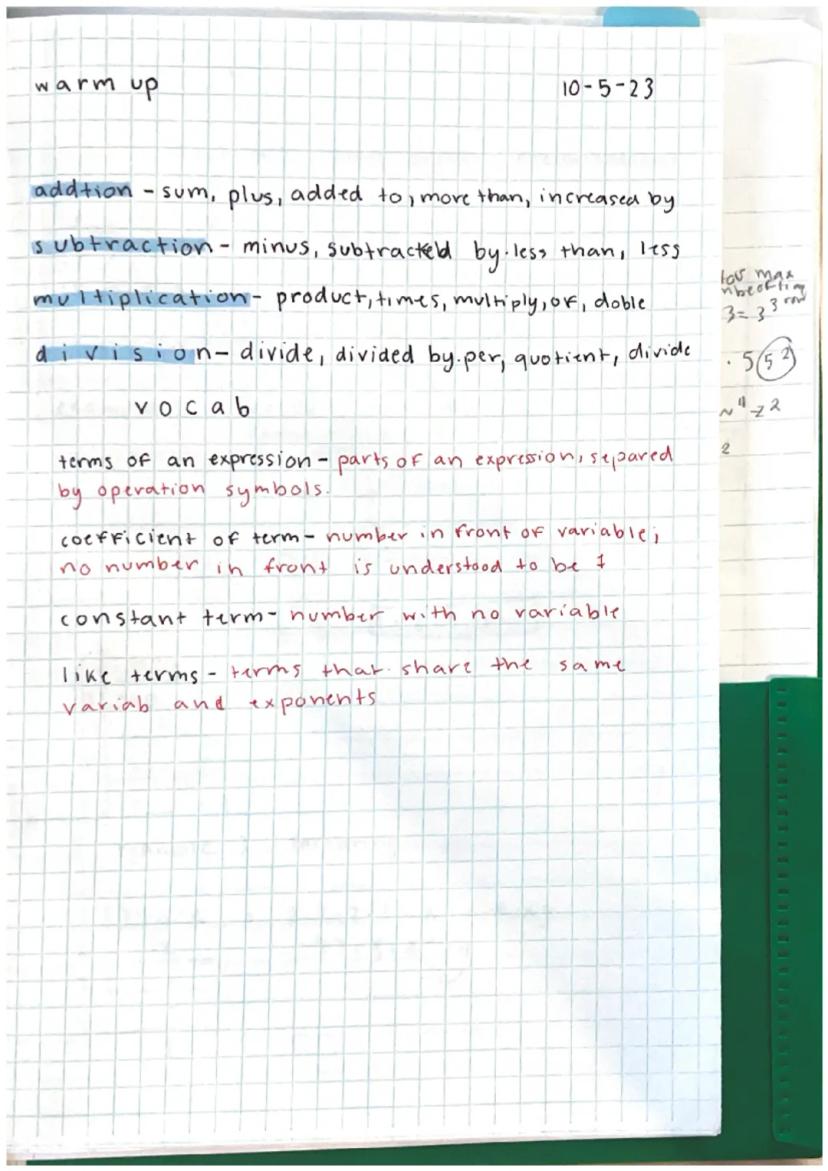 warm up 10-5-23
addtion - sum, plus, added to, more than, increased by
subtraction - minus, subtracted by. less than, less
multiplication - product, times, multiply, of, doble
division - divide, divided by. per, quotient, divide
vocab
terms of an expression - parts of an expression, separed
by operation symbols.
coefficient of term - number in front of variable;
no number in front is understood to be 1
constant term - number with no variable
like terms - terms that share the same
variab and exponents
max
3 = 3³
· 5(5²)
2